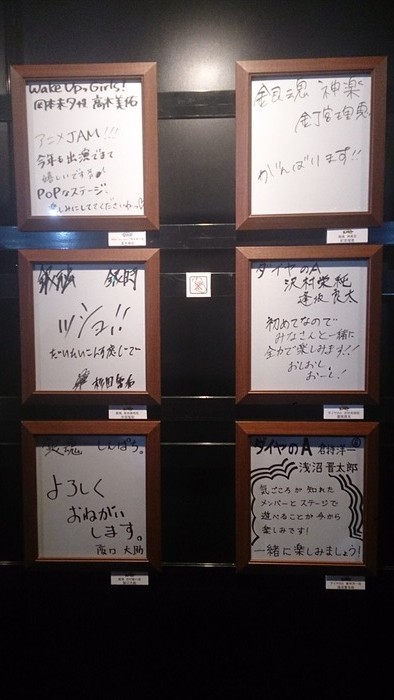 Wake Up, Girls!
岡本未夕役 高木美佑
アニメJAM!!!
今年も出演できて
嬉しいです
POPなステージ、
しみにしてくださいねっ
銀魂 神楽
釘宮理恵
がんばります!!
銀魂 銀時
ッショ!!
だいたいこんな感じで
杉田智和
ダイヤのA
沢村栄純
逢坂良太
初めてなので
みなさんと一緒に
全力で楽しみます!!
おしおし
おーし!
銀魂 しんぱち。
よろしく
おねがい
します。
阪口 大助
ダイヤのA 倉持洋一
浅沼晋太郎
気ごころが知れた
メンバーとステージで
遊べることが今から
楽しみです!
一緒に楽しみましょう!